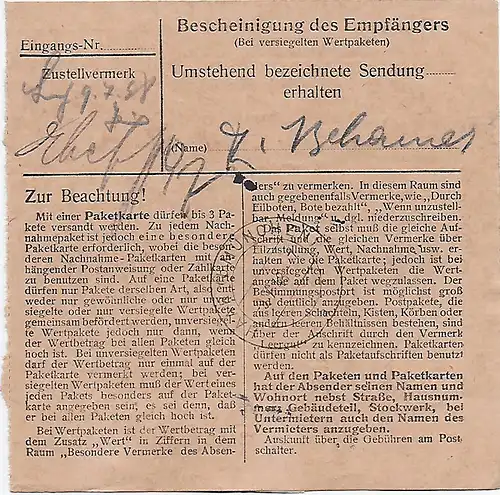 Bescheinigung des Empfängers
(Bei versiegelten Wertpaketen)
Eingangs-Nr.
Zustellvermerk
Umstehend bezeichnete Sendung
erhalten
(Name)
Zur Beachtung!
Mit einer Paketkarte dürfen bis 3 Pa-
kete versandt werden. Zu jedem Nach-
nahmepaket ist jedoch eine besondere
Paketkarte erforderlich, wobei die beson-
deren Nachnahme-Paketkarten mit an-
hängender Postanweisung oder Zahlkarte
zu benutzen sind. Auf eine Paketkarte
dürfen nur Pakete derselben Art, also ent-
weder nur gewöhnliche oder nur unver-
siegelte oder nur versiegelte Wertpakete
gemeinsam befördert werden, unversiegel-
te Wertpakete jedoch nur dann, wenn
der Wertbetrag bei allen Paketen gleich
hoch ist. Bei unversiegelten Wertpaketen
darf der Wertbetrag nur einmal auf der
Paketkarte vermerkt werden; bei ver-
siegelten Wertpaketen muß der Wert eines
jeden Pakets besonders auf der Paket-
karte angegeben sein, es sei denn, daß
er bei allen Paketen gleich hoch ist.
Bei Wertpaketen ist der Wertbetrag mit
dem Zusatz „Wert" in Ziffern in dem
Raum „Besondere Vermerke des Absen-
ders" zu vermerken. In diesem Raum sind
auch gegebenenfalls Vermerke, wie „Durch
Eilboten, Bote bezahlt", „Wenn unzustell-
bar, Meldung" u. dgl. niederzuschreiben.
Das Paket selbst muß die gleiche Auf-
schrift und die gleichen Vermerke über
Eilzustellung, Wert, Nachnahme usw. er-
halten wie die Paketkarte; jedoch ist bei
unversiegelten Wertpaketen die Wert-
angabe auf dem Paket wegzulassen. Der
Bestimmungspostort ist möglichst groß
und deutlich anzugeben. Postpakete, die
aus leeren Schachteln, Kisten, Körben oder
anderen leeren Behältnissen bestehen, sind
über der Aufschrift durch den Vermerk
„Leergut" zu kennzeichnen. Paketkarten
dürfen nicht als Paketaufschriften benutzt
werden.
Auf den Paketen und Paketkarten
hat der Absender seinen Namen und
Wohnort nebst Straße, Hausnum-
mer, Gebäudeteil, Stockwerk, bei
Untermietern auch den Namen des
Vermieters anzugeben.
Auskunft über die Gebühren am Post-
schalter.